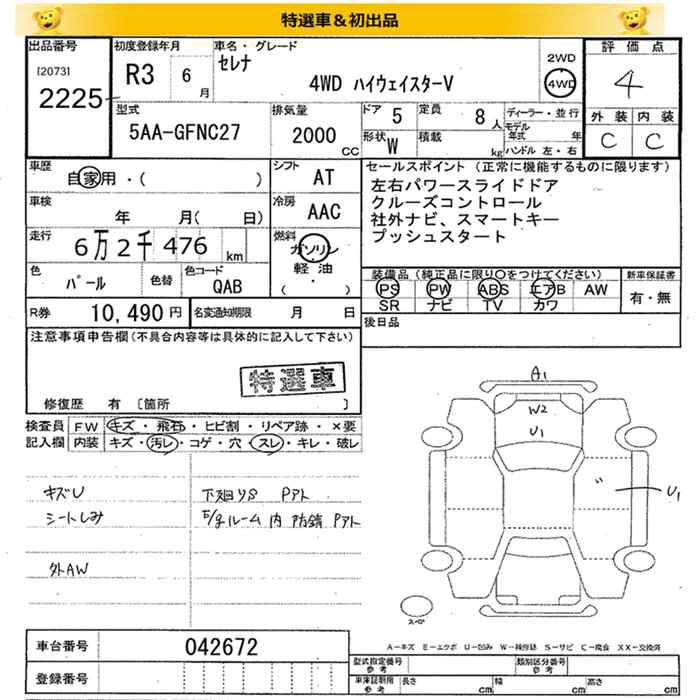 特選車＆初出品
出品番号 初度登録年月 車名・グレード 評価点
[2073] 2225 R3 6月 セレナ 4WD ハイウェイスターV 2WD 4WD 4
型式 排気量 ドア 5 定員 8人 ディーラー・並行 外装 内装
5AA-GFNC27 2000 CC 形状 W 積載 kg モデル年式 年 C C
ハンドル 左・右
車歴 自家用・( ) シフト AT セールスポイント (正常に機能するものに限ります)
左右パワースライドドア
車検 年 月( 日) 冷房 AAC クルーズコントロール
社外ナビ、スマートキー
走行 6万2千476km 燃料 ガソリン 軽油 ( ・ ) プッシュスタート
色 パール 色替 色コード QAB 装備品(純正品に限り○をつけてください) 新車保証書
PS PW ABS エアB AW 有・無
SR ナビ TV カワ
R券 10,490円 名変通知期限 月 日 後日品
注意事項申告欄(不具合内容等は具体的に記入して下さい)
特選車
修復歴 有 [箇所 ]
検査員 FW キズ・飛石・ヒビ割・リペア跡・×要
記入欄 内装 キズ・汚レ・コゲ・穴・スレ・キレ・破レ
キズU 下廻りS Pアト
シートしみ E/gルーム 内 防錆 Pアト
外AW
A1
W2
U1
U1
スペア
A-キズ E-エクボ U-凹み W-補修跡 S-サビ C-腐食 XX-交換済
車台番号 042672
登録番号
型式指定番号 参考 類別区分番号 参考
車庫証明用 参考 長さ cm 幅 cm 高さ cm